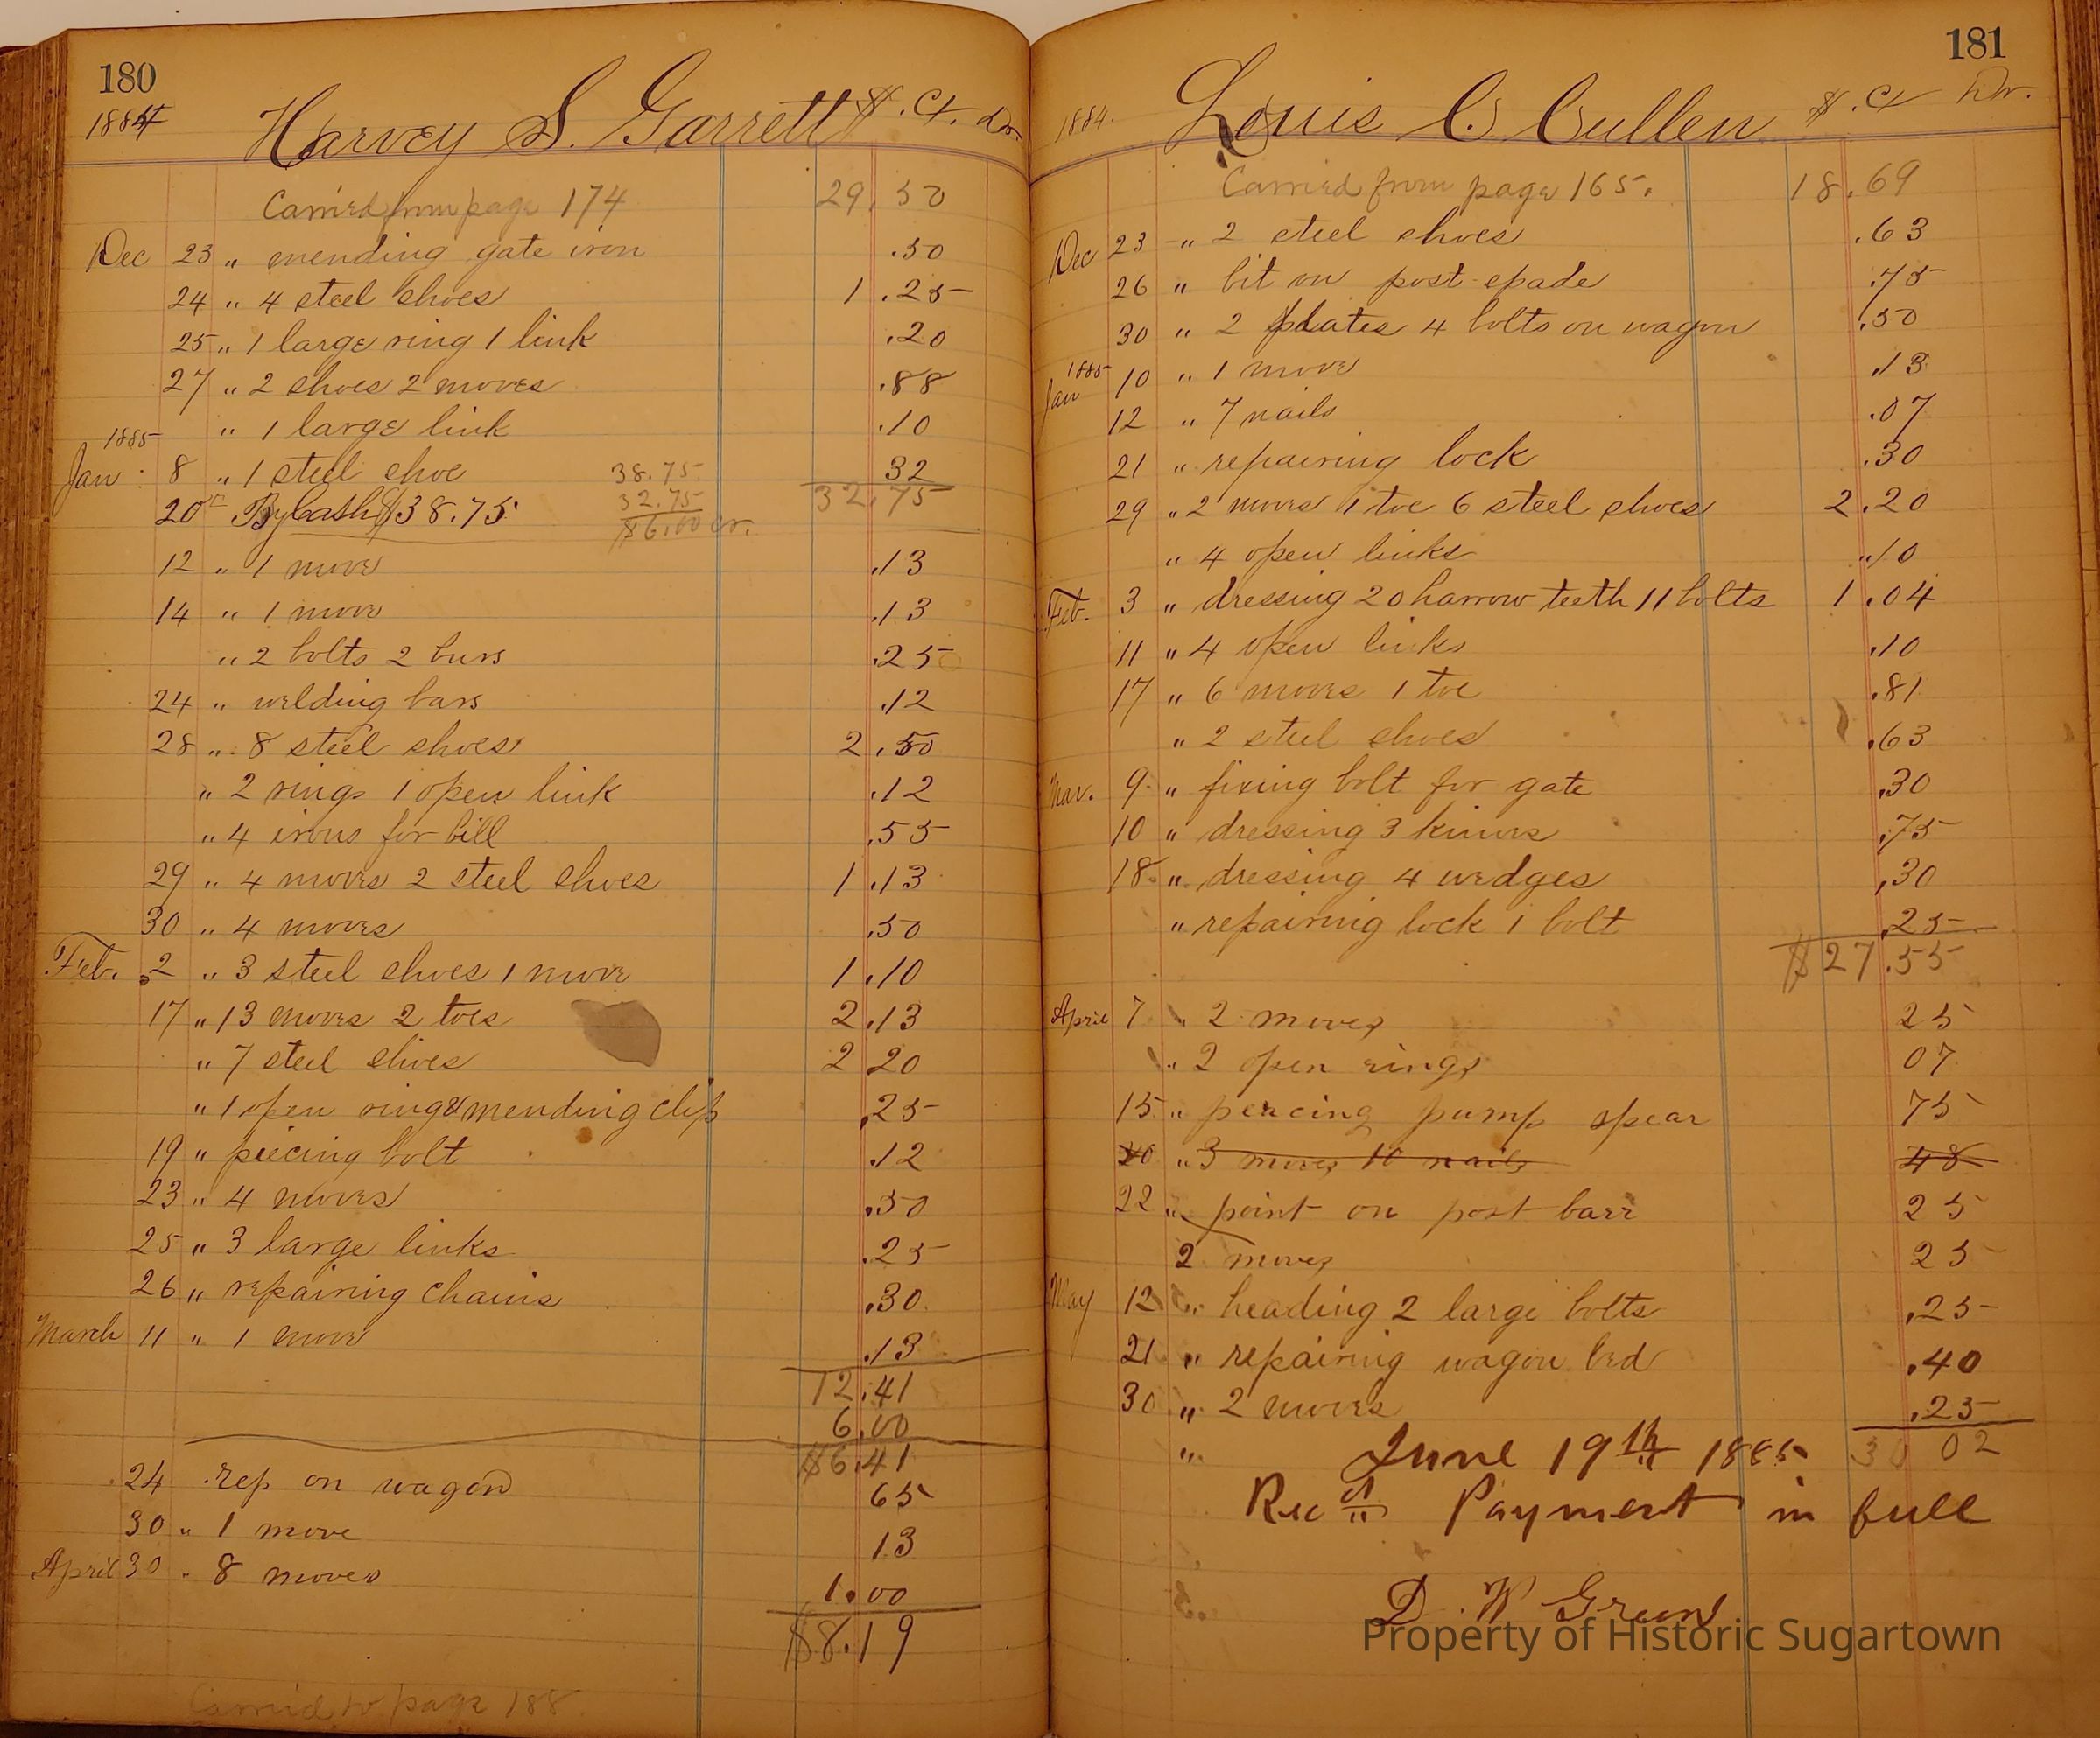 180
1884 Harvey S. Garrett $. Ct. Dr.
Carried from page 174 29.50
Dec 23 " mending gate iron .50
24 " 4 steel shoes 1.25
25 " 1 large ring 1 link .20
27 " 2 shoes 2 moves .88
" 1 large link .10
1885
Jan 8 " 1 steel shoe 38.75 32
20 By Cash $38.75 32.75 32.75
$6.00 cr.
12 " 1 move .13
14 " 1 move .13
" 2 bolts 2 burs .25
24 " welding bars .12
28 " 8 steel shoes 2.50
" 2 rings 1 open link .12
" 4 irons for bill .55
29 " 4 moves 2 steel shoes 1.13
30 " 4 moves .50
Feb. 2 " 3 steel shoes 1 move 1.10
17 " 13 moves 2 toes 2.13
" 7 steel shoes 2 20
" 1 open ring & mending clip .25
19 " piecing bolt .12
23 " 4 moves .50
25 " 3 large links .25
26 " repairing chains .30
March 11 " 1 move .13
12.41
6.00
$6.41
24 rep on wagon 65
30 " 1 move 13
April 30 " 8 moves 1.00
$8.19
Carried to page 188
181
1884. Louis C. Cullen $.Ct Dr.
Carried from page 165. 18.69
Dec 23 " 2 steel shoes .63
26 " bit on post spade .75
30 " 2 plates 4 bolts on wagon .50
1885
Jan 10 " 1 move .13
12 " 7 nails .07
21 " repairing lock .30
29 " 2 moves 1 toe 6 steel shoes 2.20
" 4 open links .10
Feb. 3 " dressing 20 harrow teeth 11 bolts 1.04
11 " 4 open links .10
17 " 6 moves 1 toe .81
" 2 steel shoes .63
Mar. 9 " fixing bolt for gate .30
10 " dressing 3 knives .75
18 " dressing 4 wedges .30
" repairing lock 1 bolt .25
$27.55
April 7 " 2 moves 25
" 2 open rings 07
15 " peacing pump spear 75
20 " 3 moves 10 nails 48
22 " point on post barr 25
2 moves 25
May 12 " heading 2 large bolts .25
21 " repairing wagon bed .40
30 " 2 moves .25
" June 19th 1885 30 02
Recd Payment in full
D. W Green
Property of Historic Sugartown